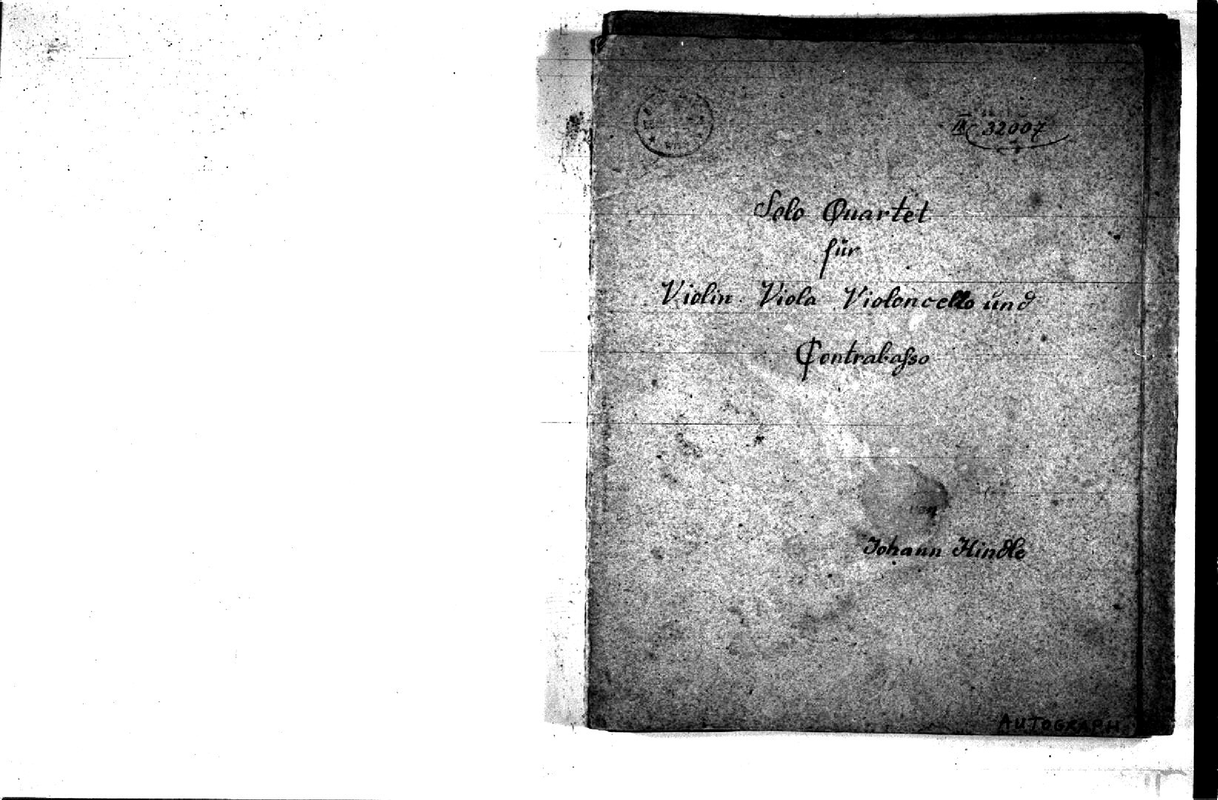 IX 32007
Solo Quartet
für
Violin Viola Violoncello und
Contrabasso
von
Johann Hindle
AUTOGRAPH